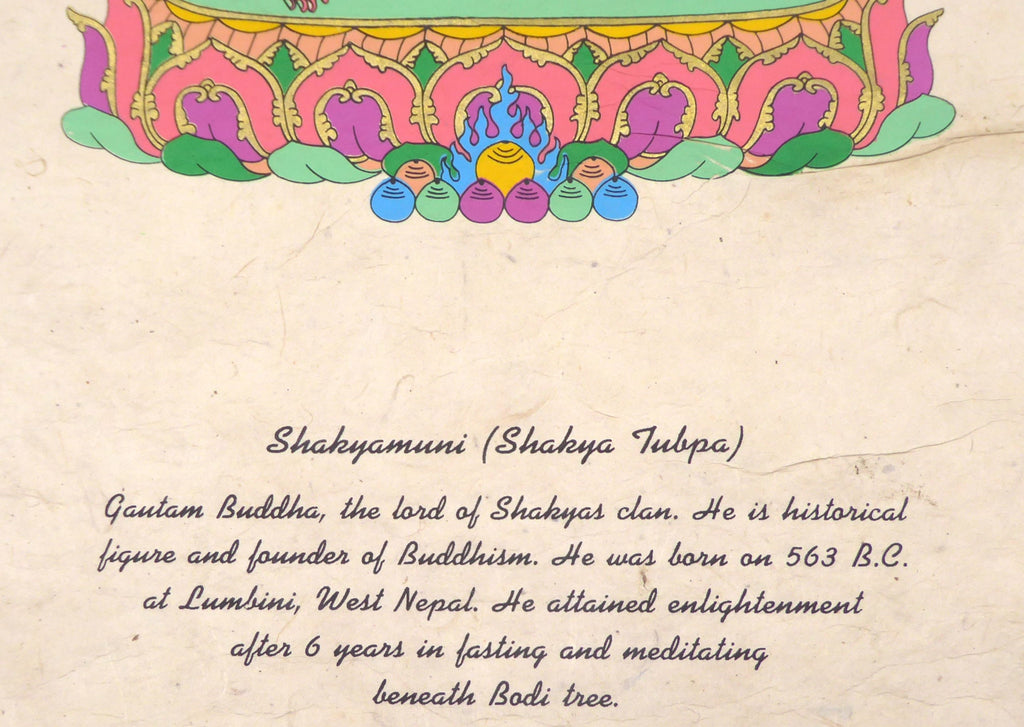 Shakyamuni (Shakya Tubpa)
Gautam Buddha, the lord of Shakyas clan. He is historical
figure and founder of Buddhism. He was born on 563 B.C.
at Lumbini, West Nepal. He attained enlightenment
after 6 years in fasting and meditating
beneath Bodi tree.